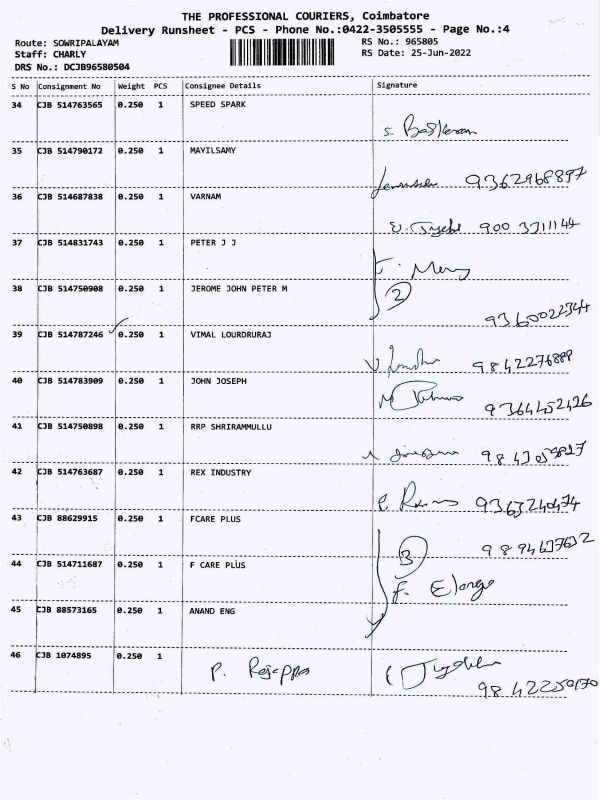 THE PROFESSIONAL COURIERS, Coimbatore
Delivery Runsheet - PCS - Phone No.:0422-3505555 - Page No.:4
Route: SOWRIPALAYAM RS No.: 965805
Staff: CHARLY RS Date: 25-Jun-2022
DRS No.: DCJB96580504
S No Consignment No Weight PCS Consignee Details Signature
34 CJB 514763565 0.250 1 SPEED SPARK
S. Baskeran
35 CJB 514790172 0.250 1 MAYILSAMY
9362968897
36 CJB 514687838 0.250 1 VARNAM
900 3711144
37 CJB 514831743 0.250 1 PETER J J
F. Mery
38 CJB 514750908 0.250 1 JEROME JOHN PETER M
2
9360022344
39 CJB 514787246 0.250 1 VIMAL LOURDRURAJ
9842276888
40 CJB 514783909 0.250 1 JOHN JOSEPH
9364452426
41 CJB 514750898 0.250 1 RRP SHRIRAMMULLU
42 CJB 514763687 0.250 1 REX INDUSTRY
9363240474
43 CJB 88629915 0.250 1 FCARE PLUS
9894637632
44 CJB 514711687 0.250 1 F CARE PLUS
3
F. Elango
45 CJB 88573165 0.250 1 ANAND ENG
46 CJB 1074895 0.250 1 P. Rajappa
9842250170